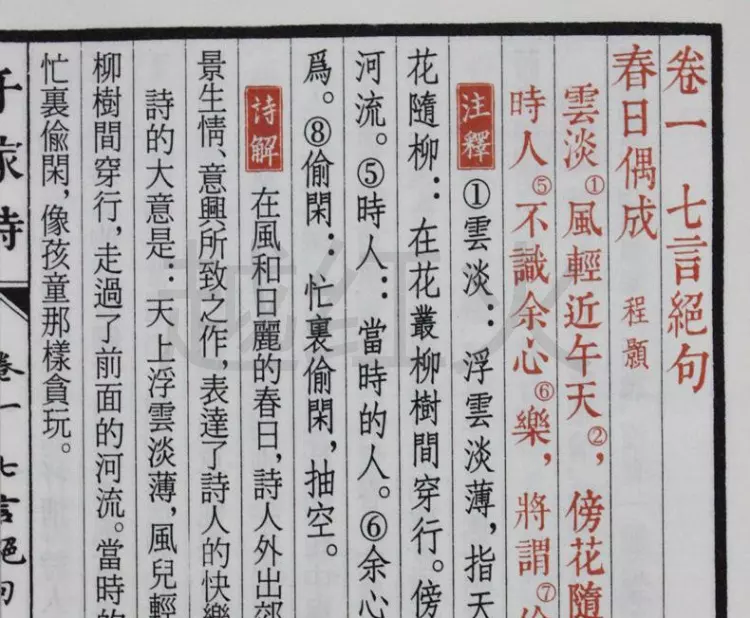 卷一 七言絕句
春日偶成 程顥
雲淡①風輕近午天②，傍花隨
時人⑤不識余心⑥樂，將謂⑦
注釋 ①雲淡：浮雲淡薄，指天
花隨柳：在花叢柳樹間穿行。傍
河流。⑤時人：當時的人。⑥余心
爲。⑧偷閑：忙裏偷閑，抽空。
詩解 在風和日麗的春日，詩人外出郊
景生情、意興所致之作，表達了詩人的快樂
詩的大意是：天上浮雲淡薄，風兒輕
柳樹間穿行，走過了前面的河流。當時的
忙裏偷閑，像孩童那樣貪玩。
千家詩 卷一 七言絕句
越红火